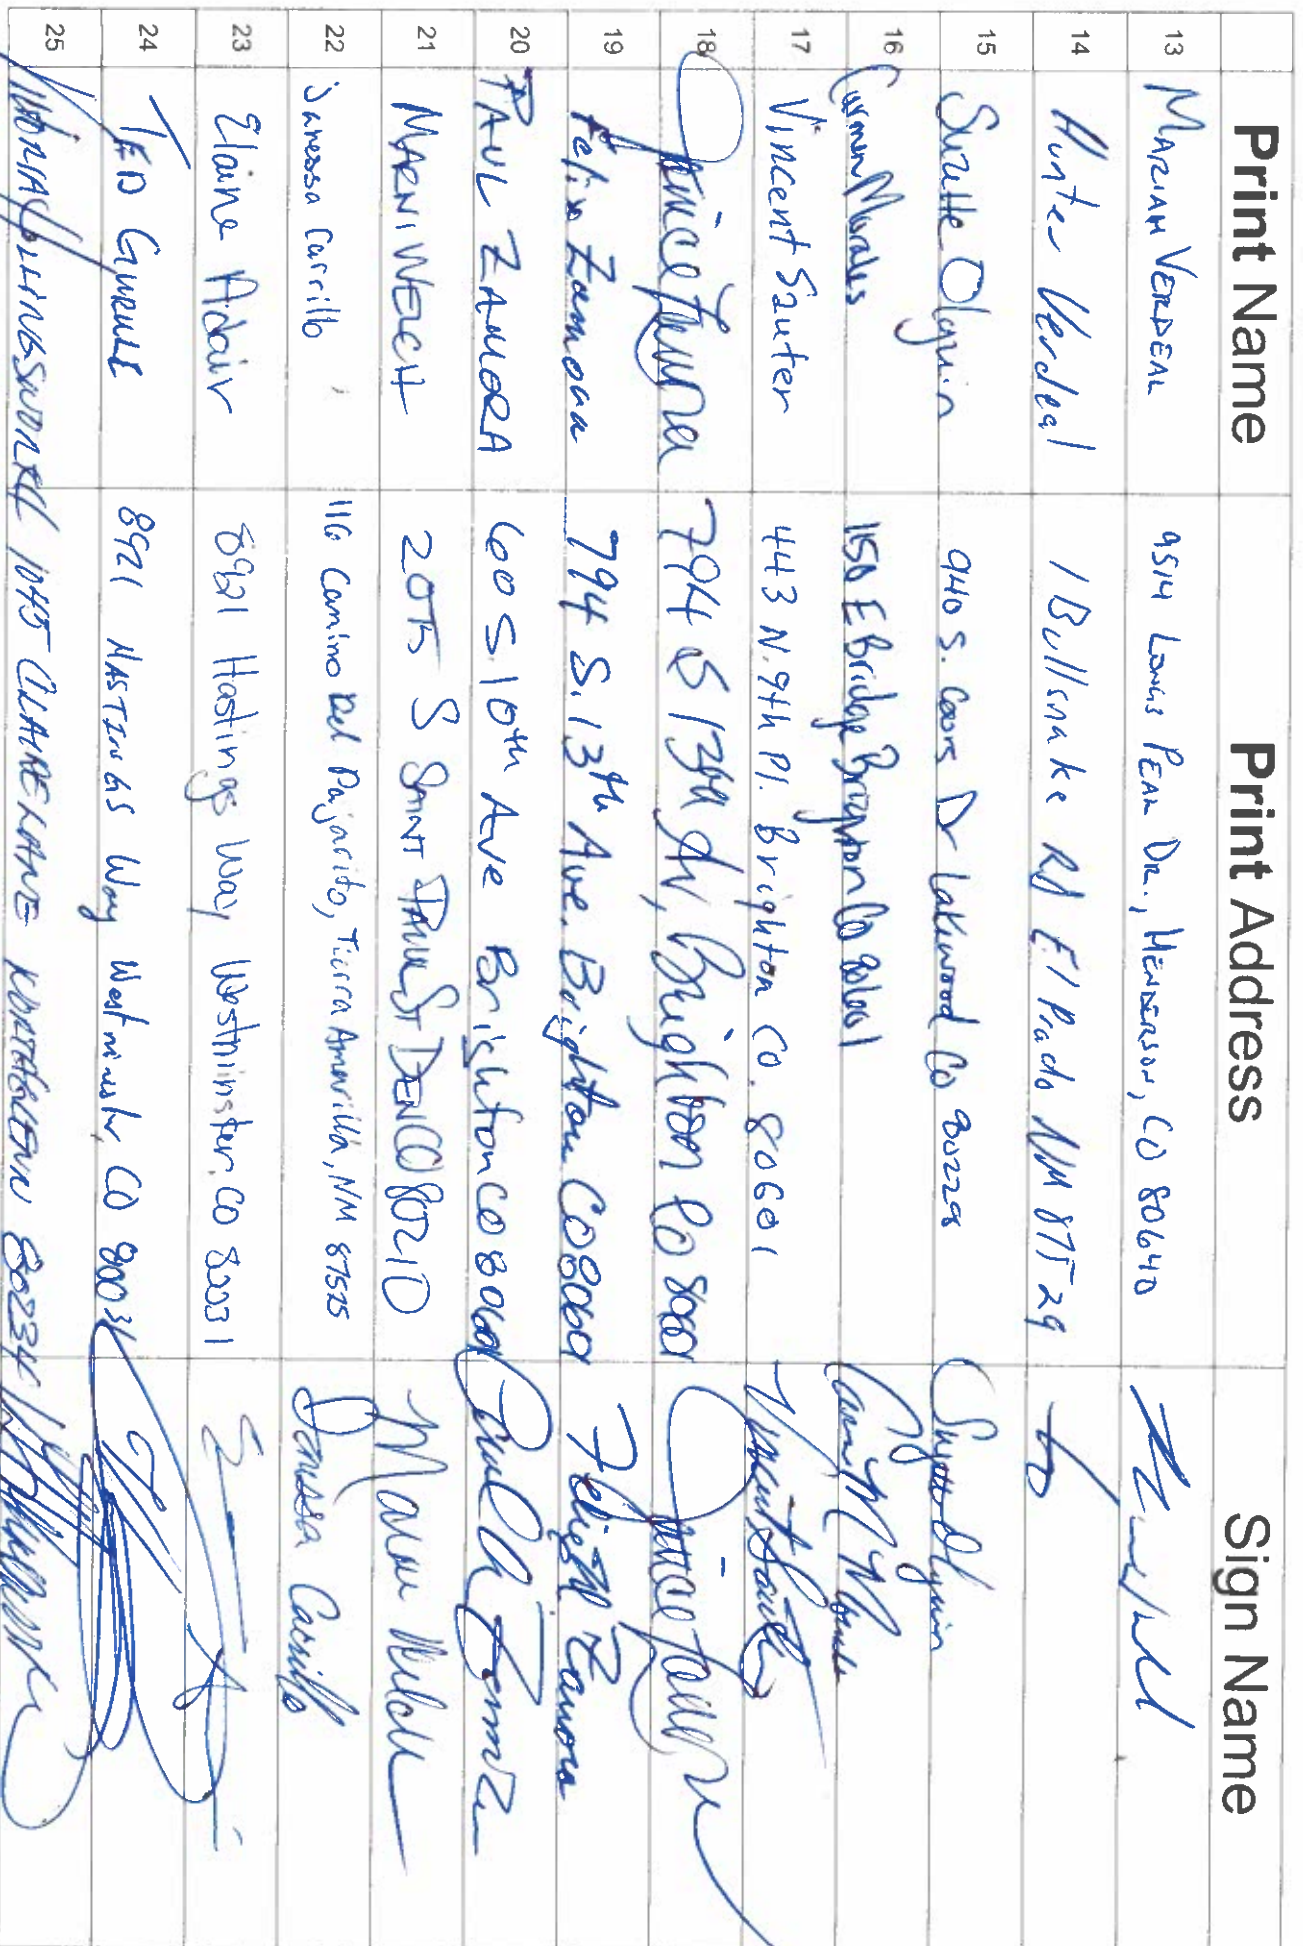 Print Name Print Address Sign Name
13 MARIAH VERDEAL 9514 LONGS PEAK DR., HENDERSON, CO 80640
14 Hunter Verdeal 1 Bullsnake Rd El Prado NM 87529
15 Suzette Olguin 940 S. Coors Dr Lakewood Co 80228 Suzette Olguin
16 Carmen Morales 1150 E Bridge Brighton Co 80601 Carmen M Morales
17 Vincent Sauter 443 N. 9th Pl. Brighton Co. 80601 Vincent Sauter
18 Janice 794 S 13th Av, Brighton Co Janice
19 Felix Zamora 794 S. 13th Ave. Brighton CO 80601 Zamora
20 PAUL ZAMORA 60 S. 10th Ave Brighton CO 80601 Paul
21 MARNI WELCH 2075 S SAINT PAUL ST DEN CO 80210 Marni Welch
22 Janessa Carrillo 116 Camino Del Pajarito, Tierra Amarilla, NM 87575 Janessa Carrillo
23 Elaine Adair 8921 Hastings Way Westminster, CO 80031
24 TED GURULE 8921 HASTINGS Way Westminster, CO 80031
25 HOLLINGSWORTH 1045 CLAIRE LANE NORTHGLENN 80234